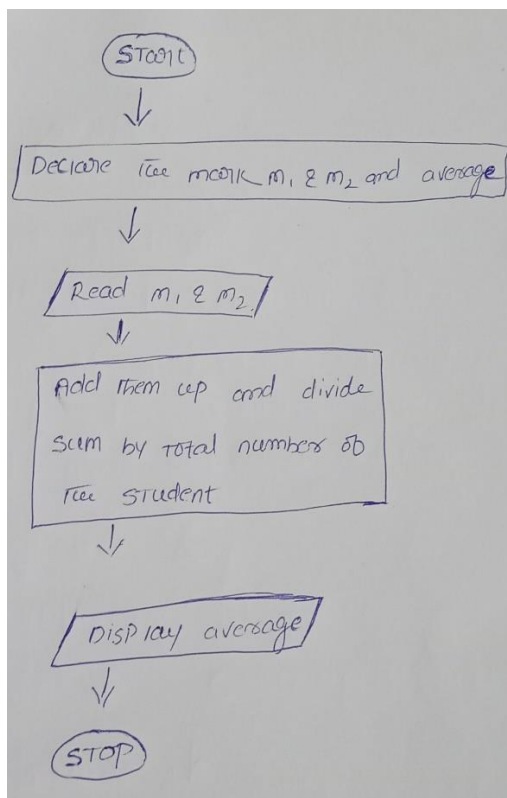 START
Declare The mark m₁ & m₂ and average
Read m₁ & m₂.
Add Them up and divide
sum by Total number of
The Student
Display average
STOP